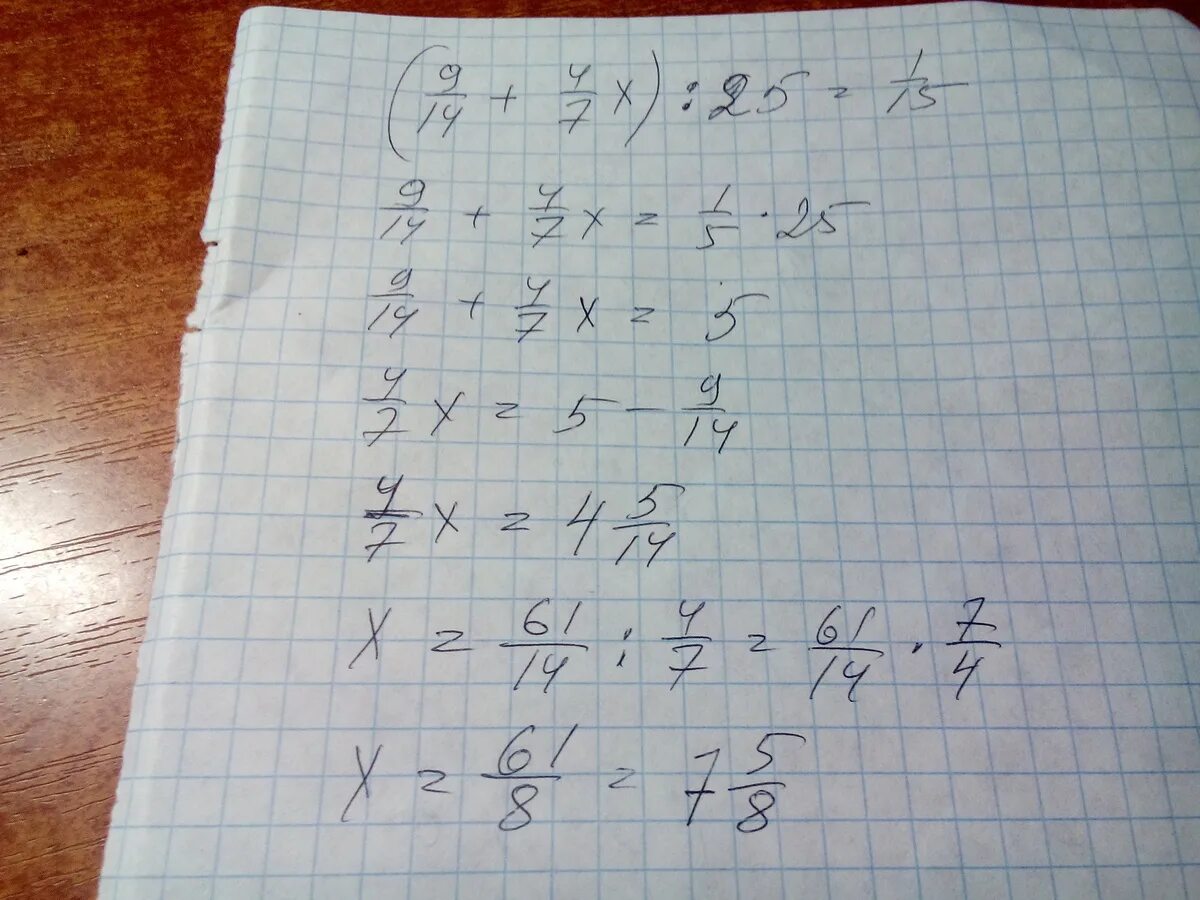 (9/14 + 4/7 x) : 25 = 1/15
9/14 + 4/7 x = 1/5 · 25
9/14 + 4/7 x = 5
4/7 x = 5 - 9/14
4/7 x = 4 5/14
x = 61/14 : 4/7 = 61/14 · 7/4
x = 61/8 = 7 5/8